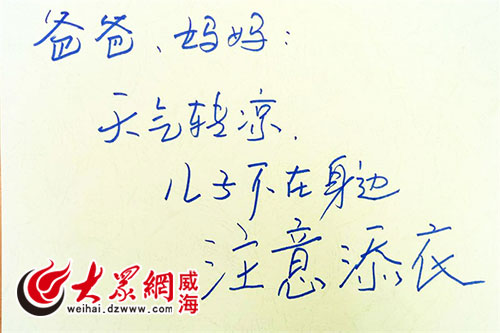 爸爸、妈妈：
天气转凉.
儿子不在身边
注意添衣
大眾網 威海
weihai.dzwww.com